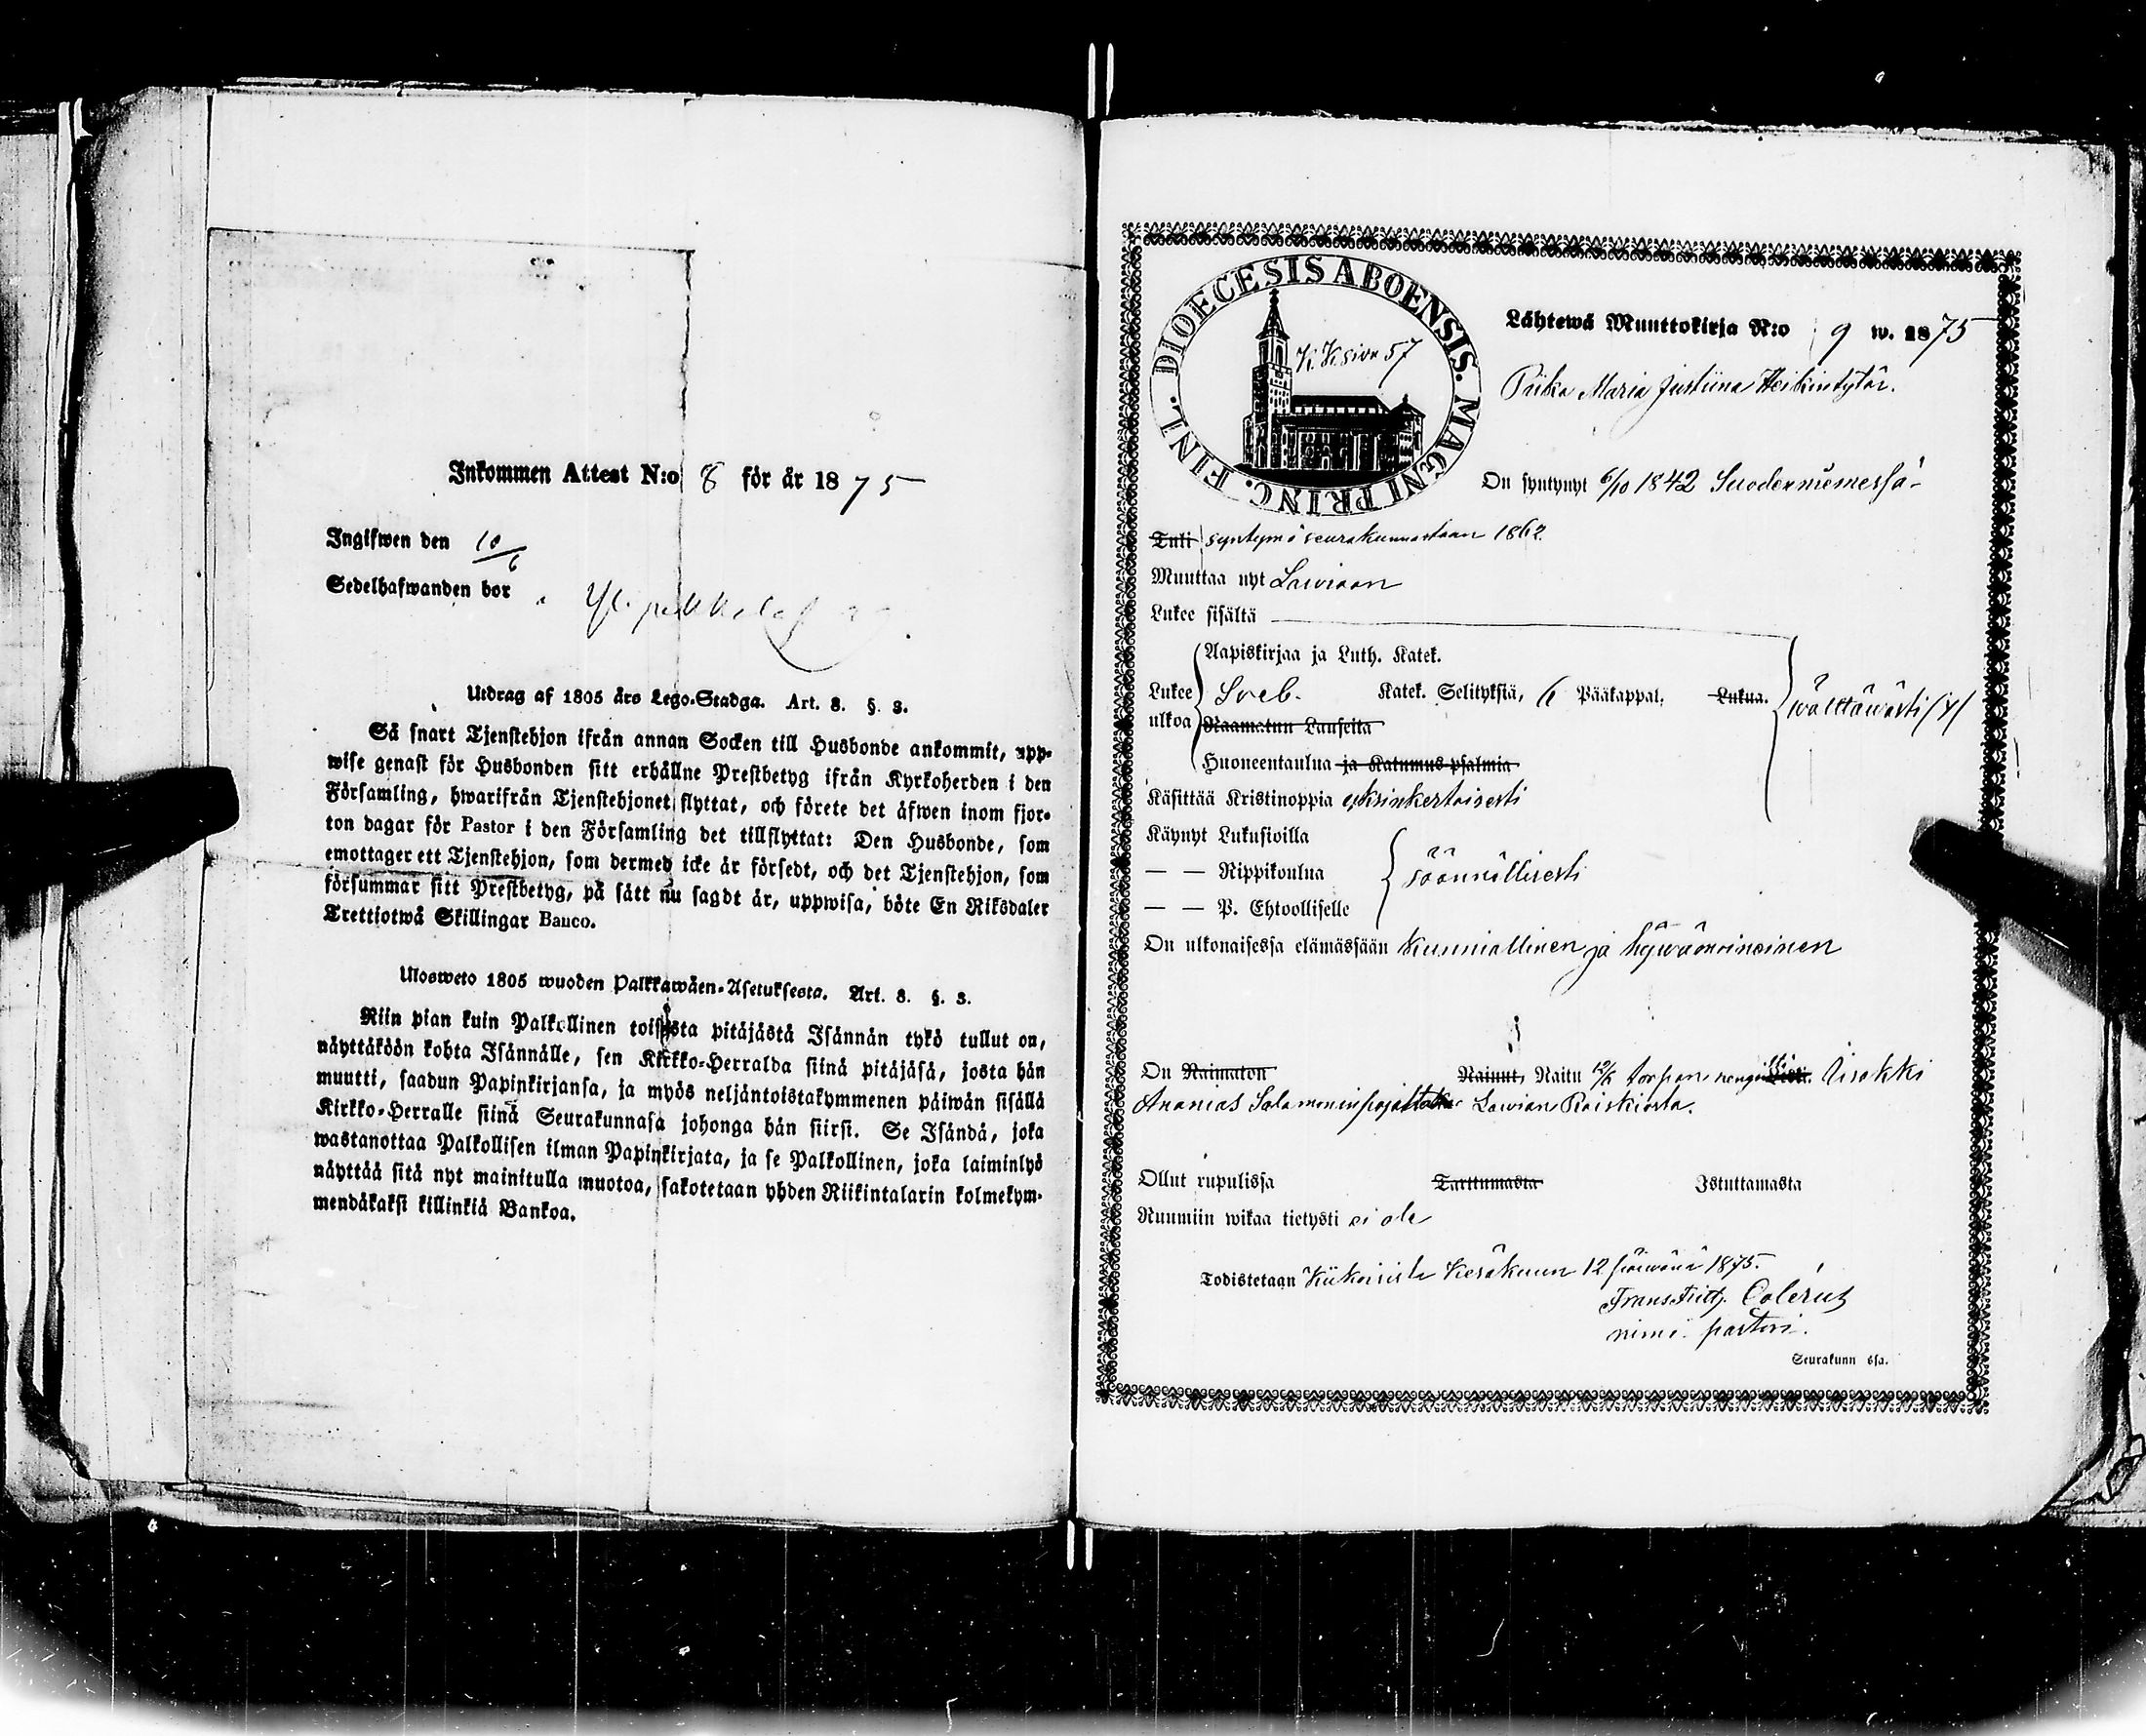 Inkommen Attest N:o 8 för år 1875
Ingifwen den 10/6
Sedelhafwanden bor
Utdrag af 1805 års Lego-Stadga. Art. 8. §. 3.
Så snart Tjenstehjon ifrån annan Socken till Husbonde ankommit, upp-
wise genast för Husbonden sitt erhållne Prestbetyg ifrån Kyrkoherden i den
Församling, hwarifrån Tjenstehjonet flyttat, och förete det äfwen inom fjor-
ton dagar för Pastor i den Församling det tillflyttat: Den Husbonde, som
emottager ett Tjenstehjon, som dermed icke är försedt, och det Tjenstehjon, som
försummar sitt Prestbetyg, på sätt nu sagdt är, uppwisa, böte En Riksdaler
Trettiotwå Skillingar Banco.
Ulosweto 1805 wuoden Palkkawäen-Asetuksesta. Art. 8. §. 3.
Niin pian kuin Palkollinen toisesta pitäjästä Isännän tykö tullut on,
näyttäköön kohta Isännälle, sen Kirkko-Herralda siinä pitäjäsä, josta hän
muutti, saadun Papinkirjansa, ja myös neljäntoistakymmenen päiwän sisällä
Kirkko-Herralle siinä Seurakunnasa johonga hän siirsi. Se Isändä, joka
wastanottaa Palkollisen ilman Papinkirjata, ja se Palkollinen, joka laiminlyö
näyttää sitä nyt mainitulla muotoa, sakotetaan yhden Riikintalarin kolmekym-
mendäkaksi killinkiä Bankoa.
DIOECESIS ABOENSIS. MAGNI PRINC. FINL.
K.K. sivu 57
Lähtewä Muuttokirja N:o 9 w. 1875
Piika Maria Justiina Heikintytär.
On syntynyt 6/10 1842 Suodenniemessä
Tuli syntymä seurakunnastaan 1862
Muuttaa nyt Lawiaan
Lukee sisältä
Aapiskirjaa ja Luth. Katek.
Lukee ulkoa Sveb. Katek. Selityksiä, 6 Pääkappal. Lukua. wälttäwästi
Raamatun Lauseita
Huoneentaulua ja Katumus-psalmia
Käsittää Kristinoppia yksinkertaisesti
Käynyt Lukusioilla
— — Rippikoulua säännöllisesti
— — P. Ehtoolliselle
On ulkonaisessa elämässään kunniallinen ja hywämaineinen
On Naimaton Nainut, Naitu 12/6 torpan Iisakki
Ananias Salomoninpojalta Lawian Raiskiosta.
Ollut rupulissa Tarttumasta Istuttamasta
Ruumiin wikaa tietysti ei ole
Todistetaan Kiikoisista Kesäkuun 12 päiwänä 1875.
Frans Colérus
nimi. pastori.
Seurakunn ssa.